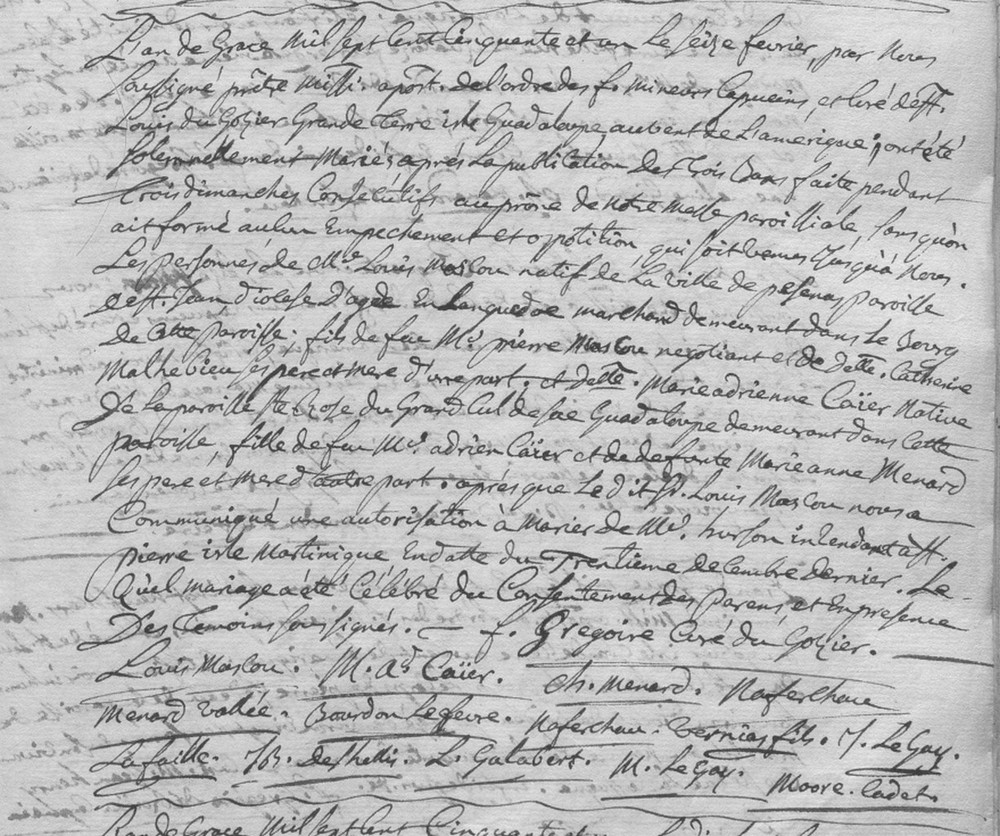 L'an de Grace Mil sept Cent Cinquante et un Le seize fevrier, par Nous
soussigné prêtre miss. apost. de l'ordre des f. mineurs Capucins, et Curé de St.
Louis du Gozier Grande Terre isle Guadaloupe au vent de L'amerique; ont été
solemnellement Mariés après La publication des Trois Bans faite pendant
trois dimanches Consecutifs au prône de notre Messe paroissiale, sans qu'on
ait formé aucun Empechement et oposition, qui soit venus jusqu'à Nous.
Les personnes de Mr. Louis Mascou natif de La Ville de pesenas paroisse
de St. Jean Diocese D'agde En Languedoc marchand demeurant dans Le Bourg
de Cette paroisse. fils de feu Mr. pierre Mascou negotiant et de Delle. Catherine
Malhebieu ses pere et mere d'une part. et Delle. Marie adrienne Caïer Native
de La paroisse Ste Rose du Grand Cul de sac Guadaloupe demeurant dans Cette
paroisse, fille de feu Mr. adrien Caïer et de defunte Marie anne Menard
ses pere et mere d'autre part. après que Le dit Sr. Louis Mascou nous a
Communiqué une autorisation à Marier de Mr. hurson intendant à St.
pierre isle Martinique En datte du Trentieme decembre dernier. Le-
Quel mariage a été Célébré du Consentement des Parens, et En presence
Des Temoins soussignés. — f. Gregoire Curé du Gozier.
Louis Mascou. M. Ad. Caïer. Ch. Menard. Naferchoue
Menard Vallée. Bourdon Lefevre. Naferchou. Vernias fils. J. Le Gay.
Lafaille. JB. L. Galabert. M. Le Gay. Moore. Cadet.
L'an de Grace Mil sept Cent Cinquante et un